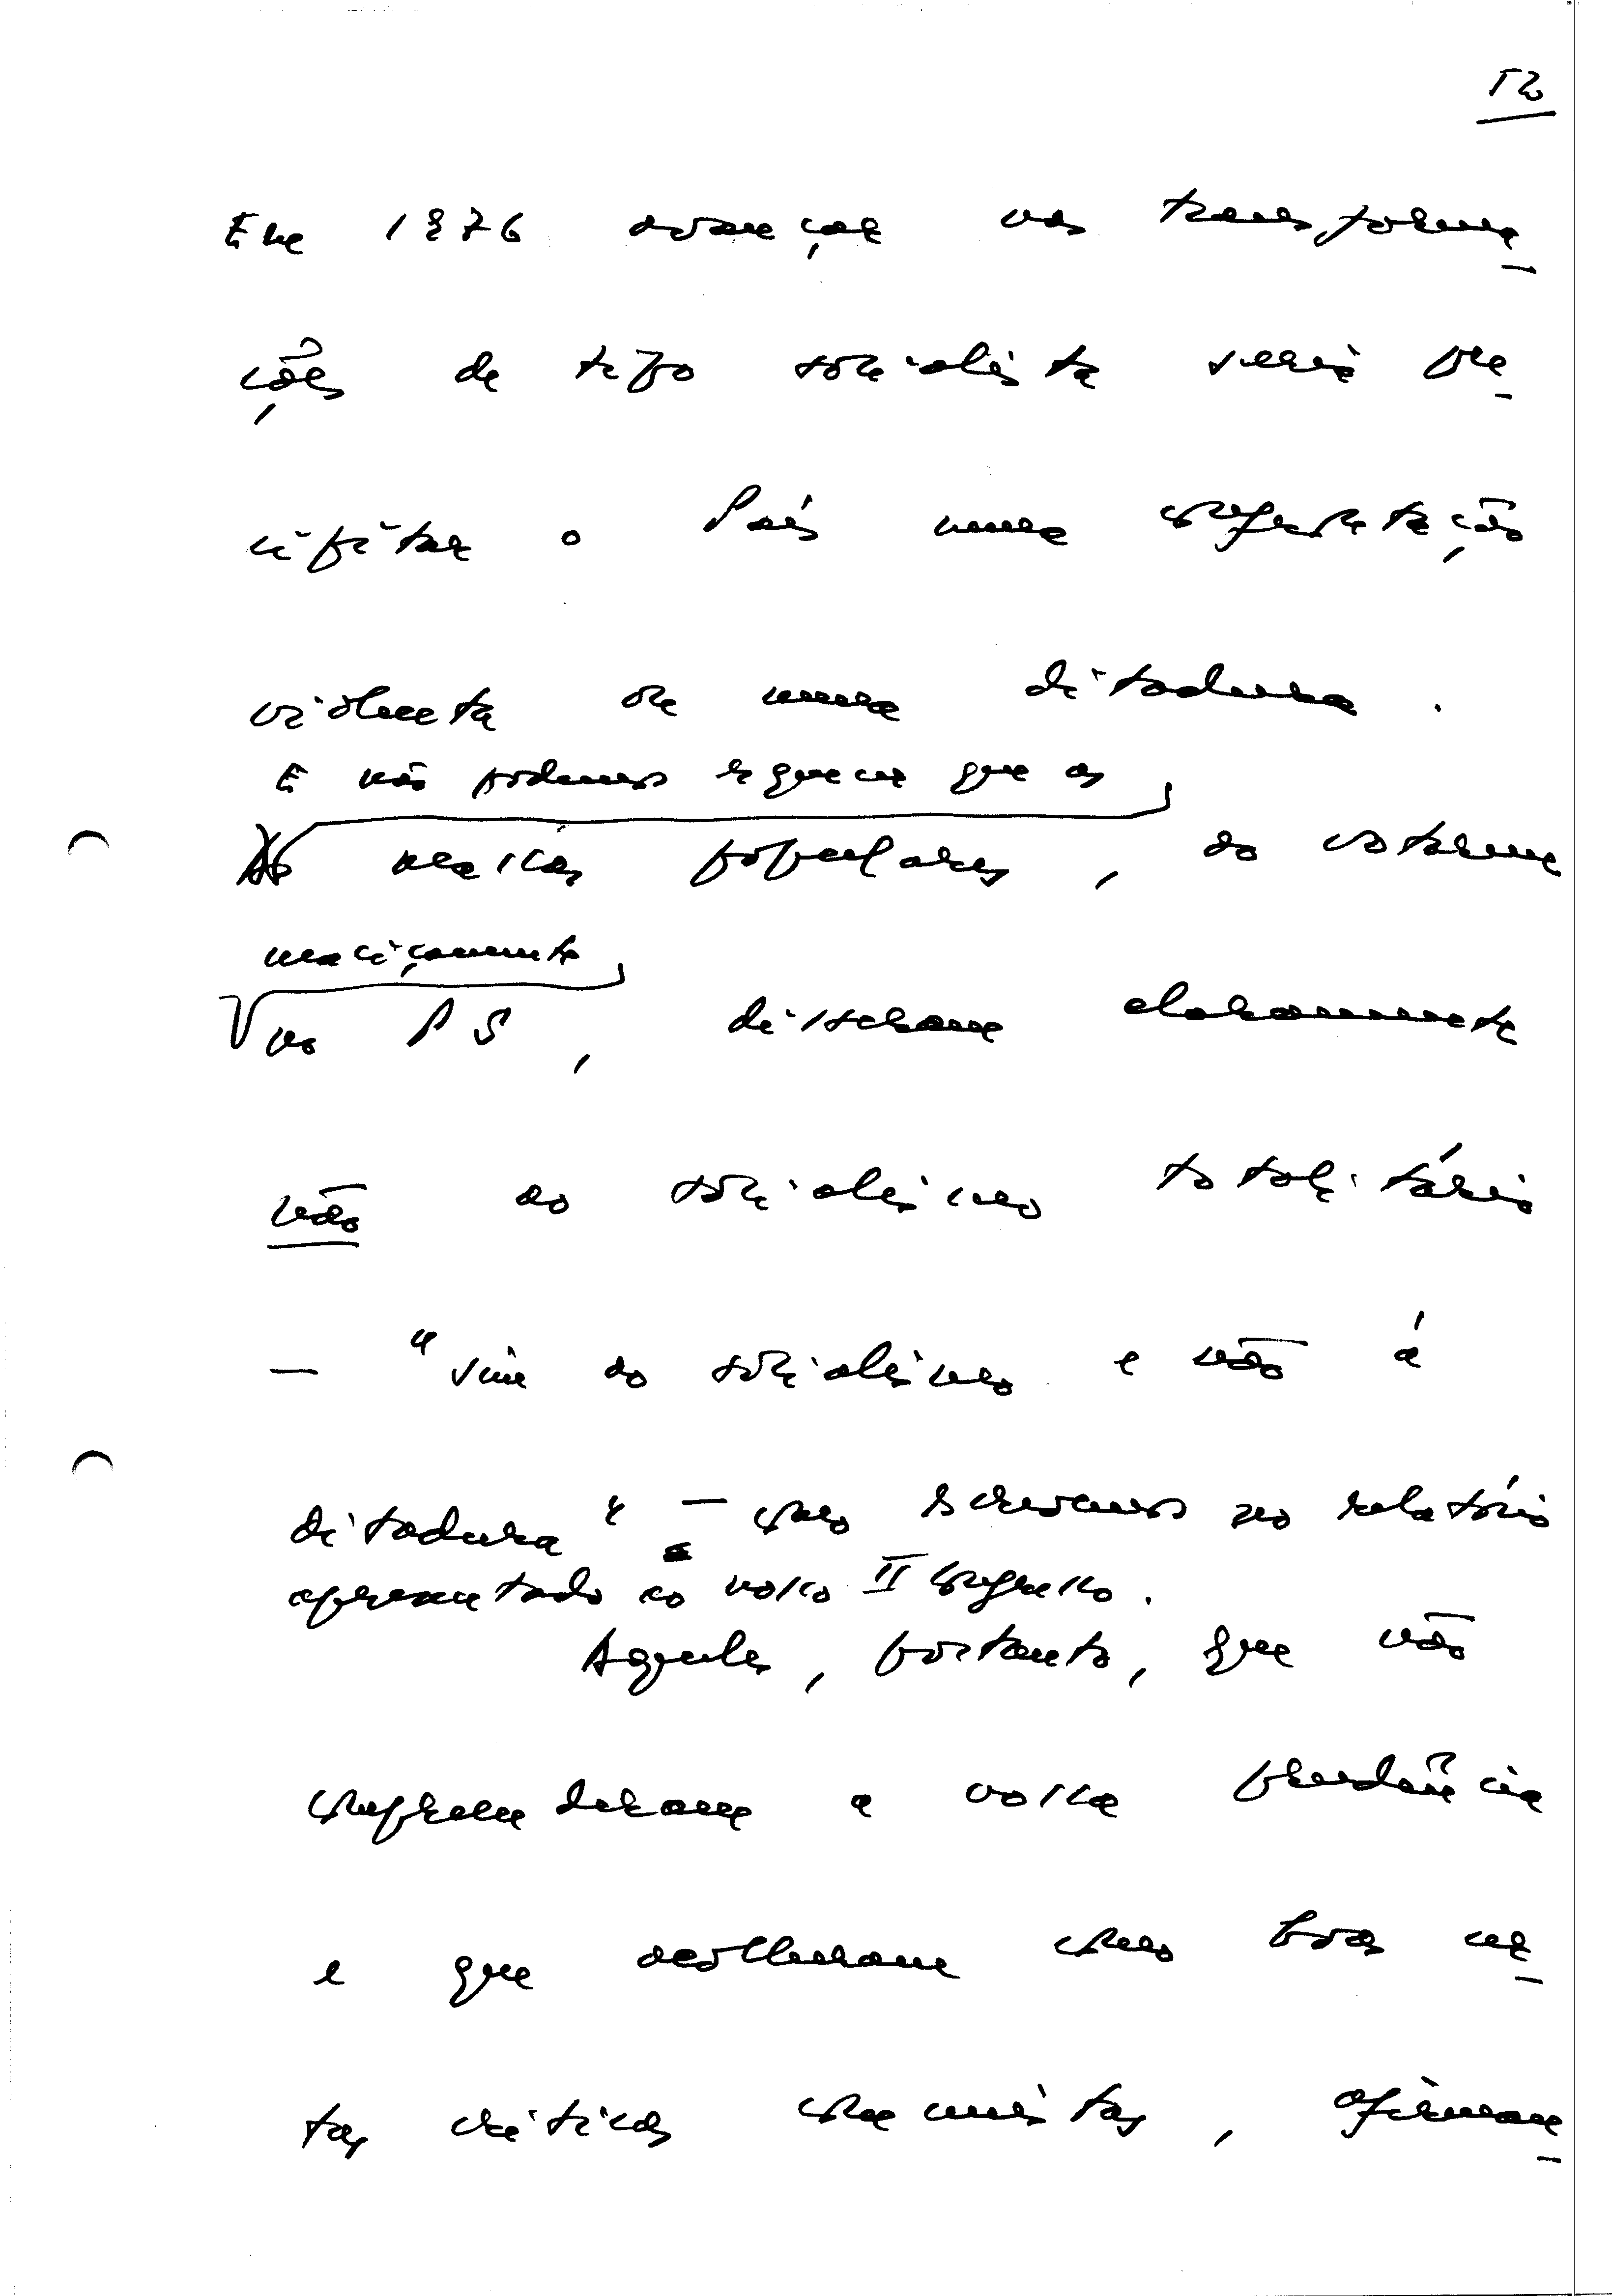 12
Em 1976 avançar nas transforma-
ções de tipo socialista seria pre-
cipitar o País numa confrontação
violenta ou numa ditadura.
E não podemos esquecer que as
massas populares, ao votarem
maciçamente
no PS, disseram claramente
não ao socialismo totalitário
— "sim ao socialismo e não à
ditadura" — como escrevemos no relatório
apresentado ao nosso II Congresso.
Aqueles, portanto, que não
compreenderam a nossa prudência
e que acolheram como boas cer-
tas críticas comunistas, afirmam-